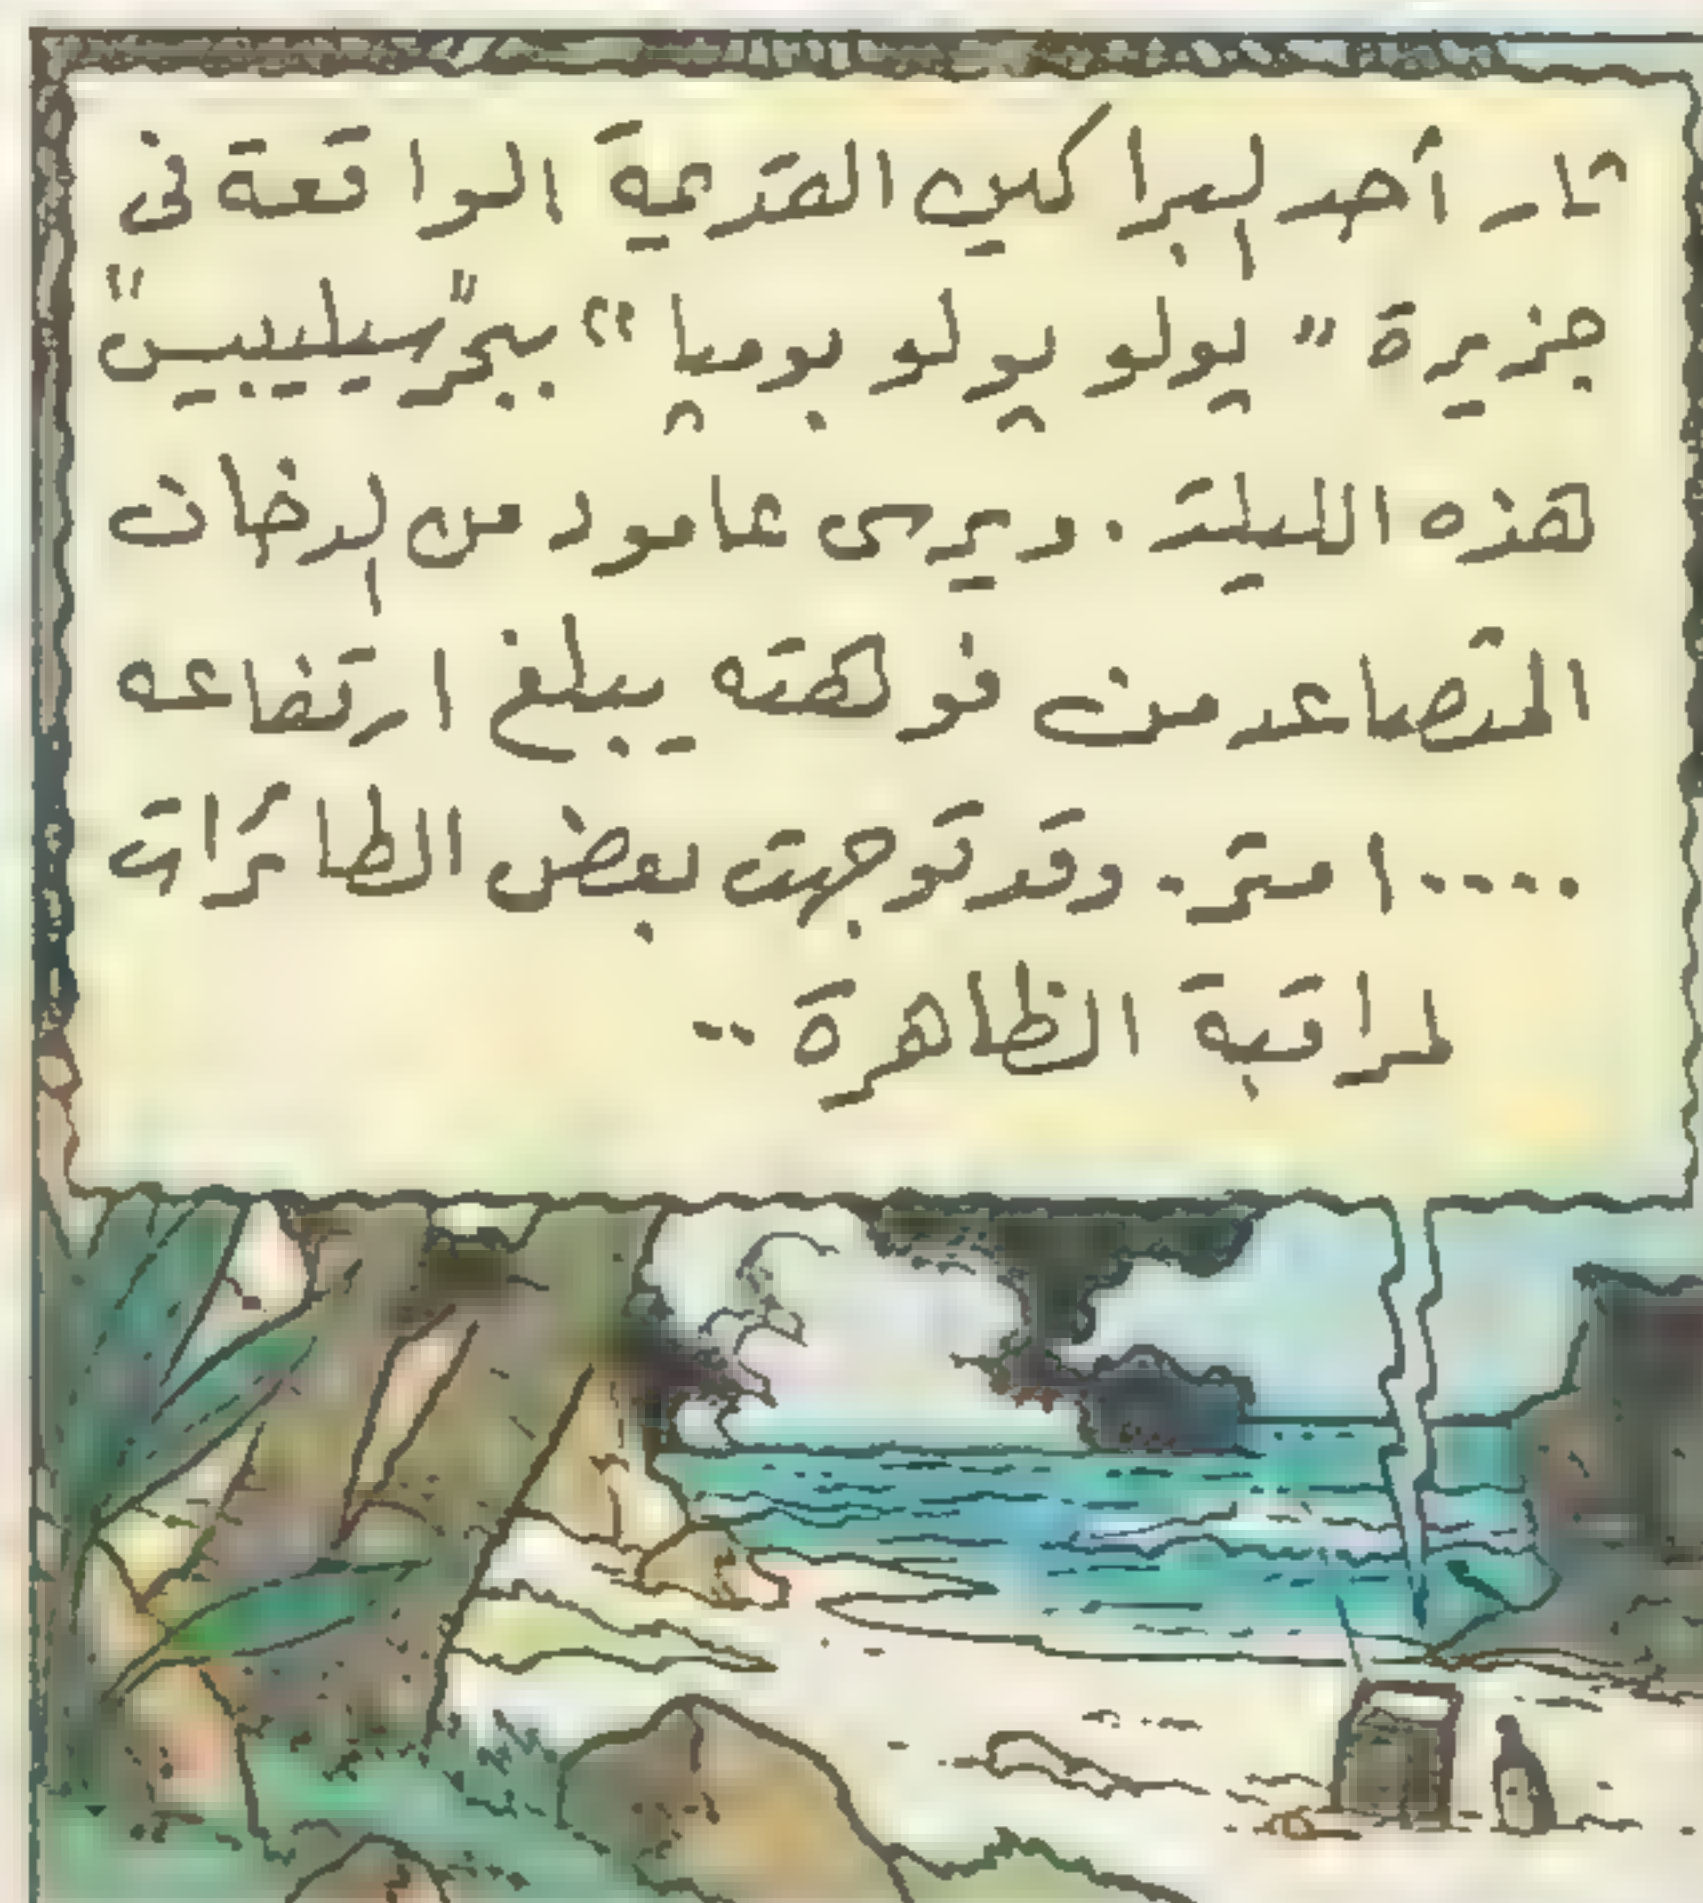 ثار أحد البراكين القديمة الواقعة فى
جزيرة "پولو پولو بومپا" ببحر "سيليبيس"
هذه الليلة. ويرى عامود من الدخان
المتصاعد من فوهته يبلغ ارتفاعه
١٠٠٠٠ متر. وقد توجهت بعض الطائرات
لمراقبة الظاهرة ..